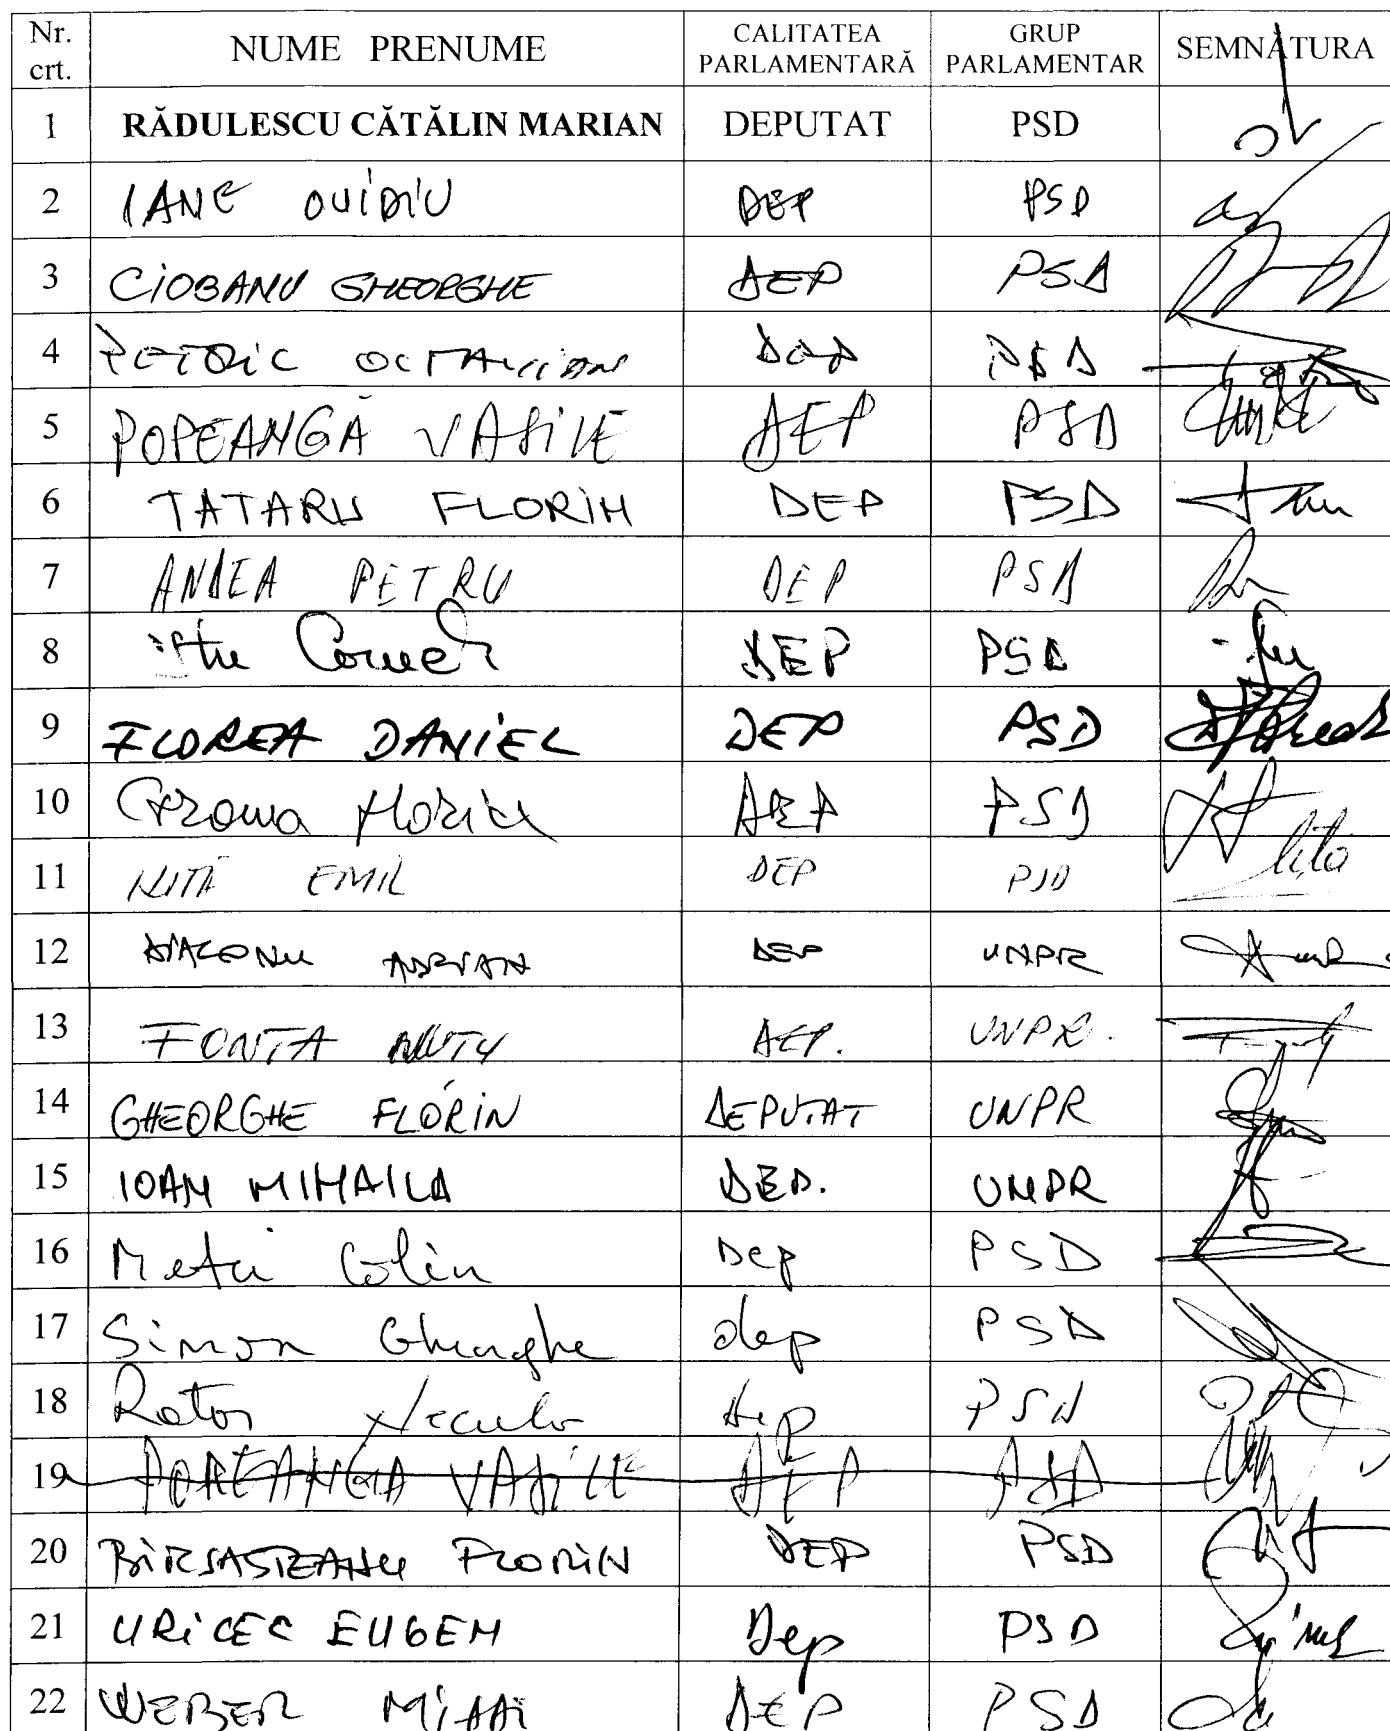 Nr. crt. NUME PRENUME CALITATEA PARLAMENTARĂ GRUP PARLAMENTAR SEMNĂTURA
1 RĂDULESCU CĂTĂLIN MARIAN DEPUTAT PSD
2 IANE OVIDIU DEP PSD
3 CIOBANU GHEORGHE DEP PSD
4 PETRIC OCTAVIAN DEP PSD
5 POPEANGĂ VASILE DEP PSD
6 TATARU FLORIN DEP PSD
7 ANDEA PETRU DEP PSD
8 Cornel DEP PSD
9 FLOREA DANIEL DEP PSD
10 Florin DEP PSD
11 NITĂ EMIL DEP PSD Nita
12 DIACONU ADRIAN DEP UNPR
13 FONTA NUTU DEP. UNPR.
14 GHEORGHE FLORIN DEPUTAT UNPR
15 IOAN MIHAILA DEP. UNPR
16 Metei Colin Dep PSD
17 Simon Gheorghe dep PSD
18 Rator Neculai dep PSD
19 POPEANGA VASILE DEP PSD
20 BIRSASTEANU FLORIN DEP PSD
21 URICEC EUGEN Dep PSD
22 WEBER MIHAI DEP PSD